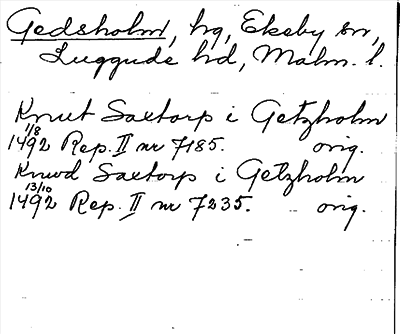 Gedsholm, hg, Ekeby sn,
Luggude hd, Malm. l.
Knut Saxtorp i Getzholm
1/8
1492 Rep. II nr 7185. orig.
Knwd Saxtorp i Getzholm
13/10
1492 Rep. II nr 7235. orig.